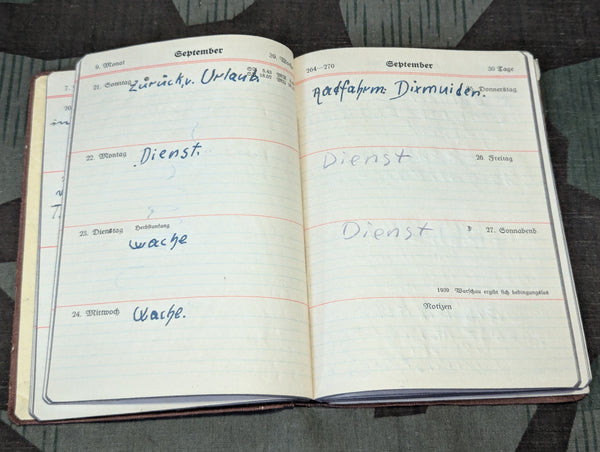 9. Monat September
21. Sonntag Zurück v. Urlaub.
22. Montag Dienst.
23. Dienstag Herbstanfang
Wache
24. Mittwoch Wache.
264—270 September 30 Tage
Radfahrn. Dixmuiden. Donnerstag
Dienst 26. Freitag
Dienst 27. Sonnabend
1939 Warschau ergibt sich bedingungslos
Notizen